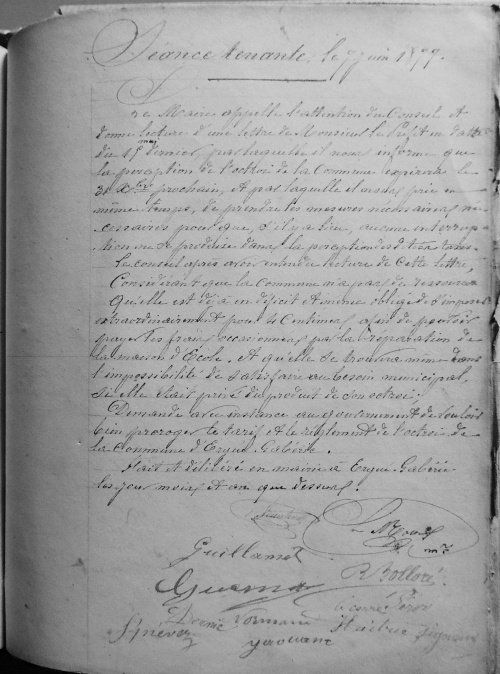 Séance tenante, le 7 juin 1877.
Le Maire appelle l'attention du Conseil et
donne lecture d'une lettre de Monsieur le Préfet en date
du 15 mai dernier, par laquelle il nous informe que
la perception de l'octroi de la Commune expirera le
31 Xbre prochain, et par laquelle il nous prie en
même temps, de prendre les mesures nécessaires né-
cessaires pour que, s'il y a lieu, aucune interrup-
tion ne se produise dans la perception des dites taxes.
Le conseil après avoir entendu lecture de cette lettre,
Considérant que la Commune n'a pas de ressources
Qu'elle est déjà en déficit et même obligée de s'imposer
extraordinairement pour 4 Centimes afin de pouvoir
payer les frais occasionnés par la réparation de
la maison d'Ecole. Et qu'elle se trouvera même dans
l'impossibilité de satisfaire au besoin municipal,
si elle était privé du produit de son octroi;
Demande avec instance au gouvernement de vouloir
bien proroger le tarif et le règlement de l'octroi de
la Commune d'Ergué-Gabéric.
Fait et délibéré en mairie à Ergué-Gabéric
les jour, mois et an que dessus.
Guillamet
R Bolloré